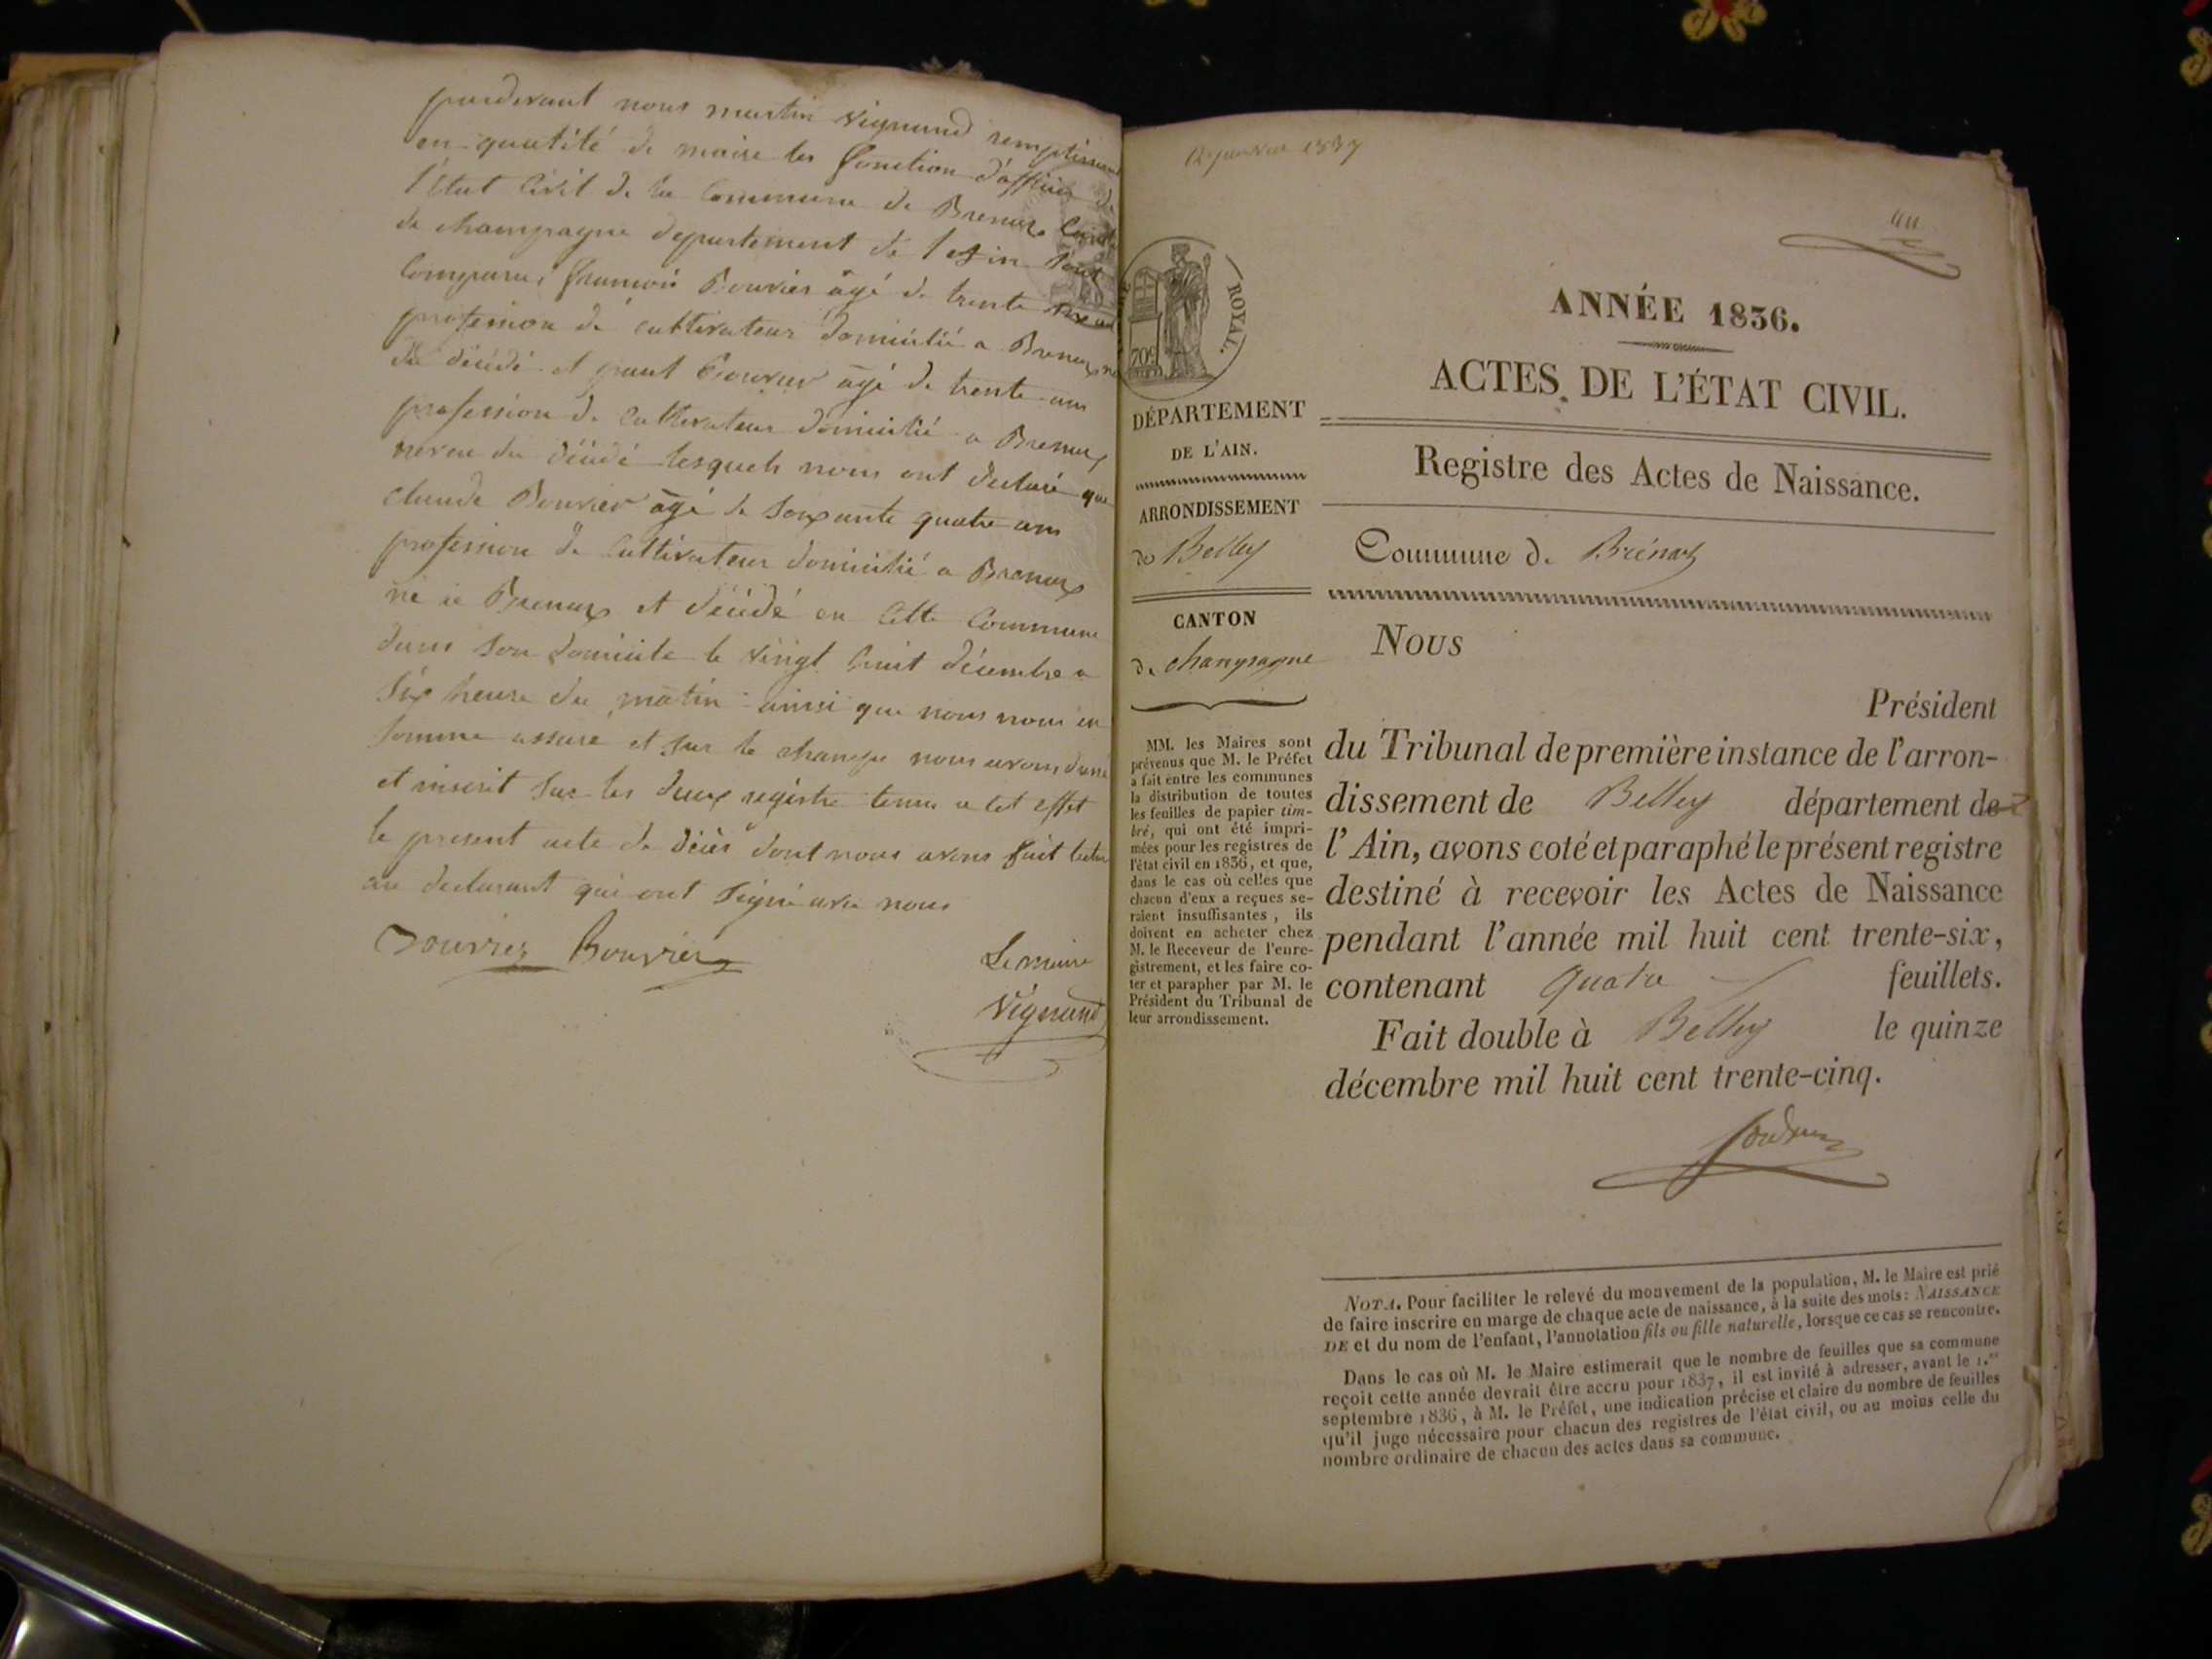 pardevant nous martin vignand remplissant
en quatité de maire les fonction d'officier de
l'état Civil de la Commune de Brenaz Canton
de champagne departement de l'ain sont
Comparu, françois Bouvier âgé de trente
profession de cultivateur domicilié a Brenaz
du décédé et Bouvier âgé de trente ans
profession de cultivateur domicilié a Brenaz
neveu du décédé lesquels nous ont declaré que
claude Bouvier âgé de soixante quatre ans
profession de Cultivateur domicilié a Brenaz
né a Brenaz et décédé en Cette Commune
dans son domicile le vingt huit décembre a
six heure du matin ainsi que nous nous en
somme assuré et sur le champs nous avons
et inscrit sur les deux registre tenu a cet effet
le present acte de décès dont nous avons fait lecture
au declarant qui ont signé avec nous
Bouvier Bouvier
Le maire
Vignand
12 janvier 1837
ROYAL.
70c
DÉPARTEMENT
DE L'AIN.
ARRONDISSEMENT
de Belley
CANTON
de champagne
MM. les Maires sont
prévenus que M. le Préfet
a fait entre les communes
la distribution de toutes
les feuilles de papier tim-
bré, qui ont été impri-
mées pour les registres de
l'état civil en 1836, et que,
dans le cas où celles que
chacun d'eux a reçues se-
raient insuffisantes, ils
doivent en acheter chez
M. le Receveur de l'enre-
gistrement, et les faire co-
ter et parapher par M. le
Président du Tribunal de
leur arrondissement.
ANNÉE 1836.
ACTES DE L'ÉTAT CIVIL.
Registre des Actes de Naissance.
Commune de Brénaz
NOUS
Président
du Tribunal de première instance de l'arron-
dissement de Belley département de
l'Ain, avons coté et paraphé le présent registre
destiné à recevoir les Actes de Naissance
pendant l'année mil huit cent trente-six,
contenant quatre feuillets.
Fait double à Belley le quinze
décembre mil huit cent trente-cinq.
NOTA. Pour faciliter le relevé du mouvement de la population, M. le Maire est prié
de faire inscrire en marge de chaque acte de naissance, à la suite des mots: NAISSANCE
DE et du nom de l'enfant, l'annotation fils ou fille naturelle, lorsque ce cas se rencontre.
Dans le cas où M. le Maire estimerait que le nombre de feuilles que sa commune
reçoit cette année devrait être accru pour 1837, il est invité à adresser, avant le 1.er
septembre 1836, à M. le Préfet, une indication précise et claire du nombre de feuilles
qu'il juge nécessaire pour chacun des registres de l'état civil, ou au moins celle du
nombre ordinaire de chacun des actes dans sa commune.